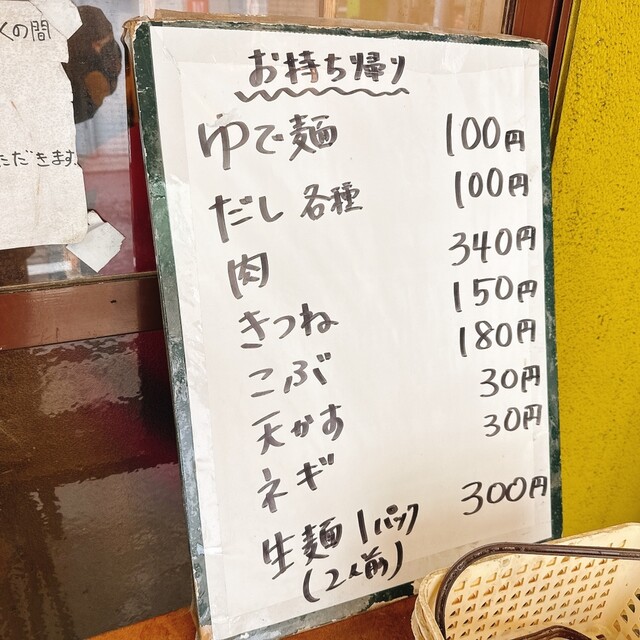 くの間
ただきます。
お持ち帰り
ゆで麺 100円
だし 各種 100円
肉 340円
きつね 150円
こぶ 180円
天かす 30円
ネギ 30円
生麺 1パック 300円
(2人前)